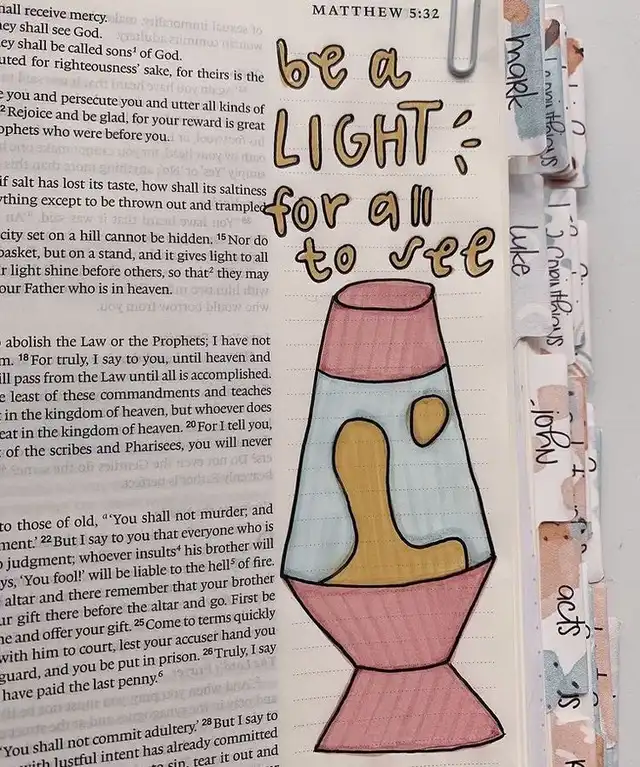 MATTHEW 5:32
hall receive mercy.
hey shall see God.
ey shall be called sons¹ of God.
uted for righteousness' sake, for theirs is the
e you and persecute you and utter all kinds of
² Rejoice and be glad, for your reward is great
ophets who were before you.
if salt has lost its taste, how shall its saltiness
ything except to be thrown out and trampled
city set on a hill cannot be hidden. ¹⁵ Nor do
basket, but on a stand, and it gives light to all
r light shine before others, so that² they may
our Father who is in heaven.
o abolish the Law or the Prophets; I have not
m. ¹⁸ For truly, I say to you, until heaven and
ill pass from the Law until all is accomplished.
e least of these commandments and teaches
t in the kingdom of heaven, but whoever does
eat in the kingdom of heaven. ²⁰ For I tell you,
of the scribes and Pharisees, you will never
to those of old, ᵃ'You shall not murder; and
ment.' ²² But I say to you that everyone who is
o judgment; whoever insults⁴ his brother will
ys, 'You fool!' will be liable to the hell⁵ of fire.
altar and there remember that your brother
ur gift there before the altar and go. First be
ne and offer your gift. ²⁵ Come to terms quickly
with him to court, lest your accuser hand you
guard, and you be put in prison. ²⁶ Truly, I say
have paid the last penny.⁶
'You shall not commit adultery.' ²⁸ But I say to
with lustful intent has already committed
to sin, tear it out and
be a
LIGHT
for all
to see
mark
luke
john
acts